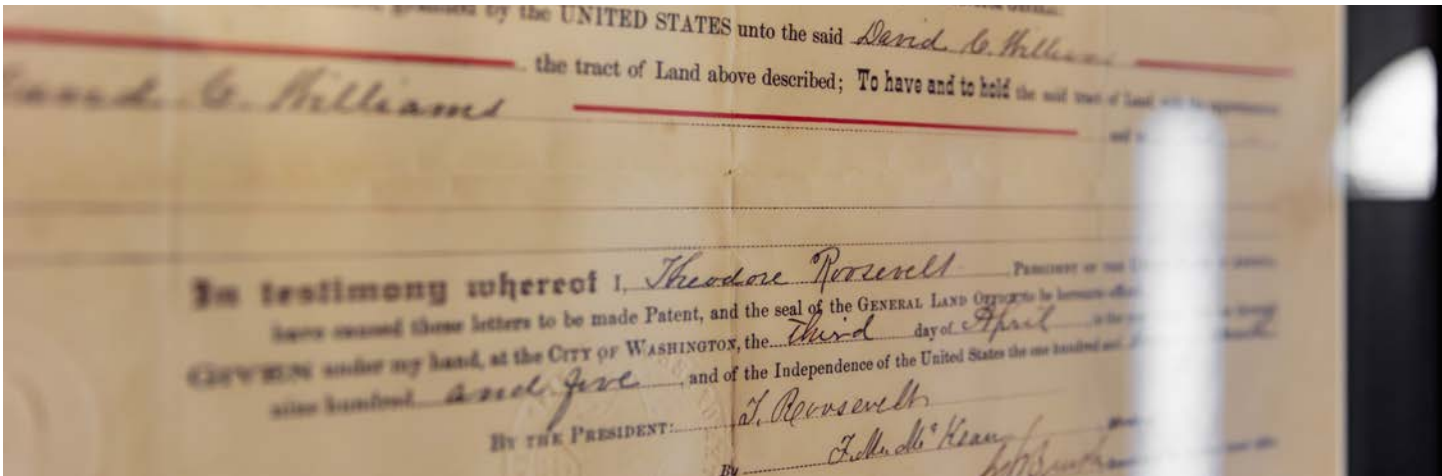 granted by the UNITED STATES unto the said David C. Williams
the tract of Land above described; To have and to hold the said tract of Land, with the appurtenances
David C. Williams
and
In testimony whereof I, Theodore Roosevelt PRESIDENT OF THE
have caused these letters to be made Patent, and the seal of the GENERAL LAND OFFICE to be hereunto
GIVEN under my hand, at the CITY OF WASHINGTON, the third day of April in the
nine hundred and five, and of the Independence of the United States the one hundred and
BY THE PRESIDENT: T. Roosevelt
By F. M. McKean